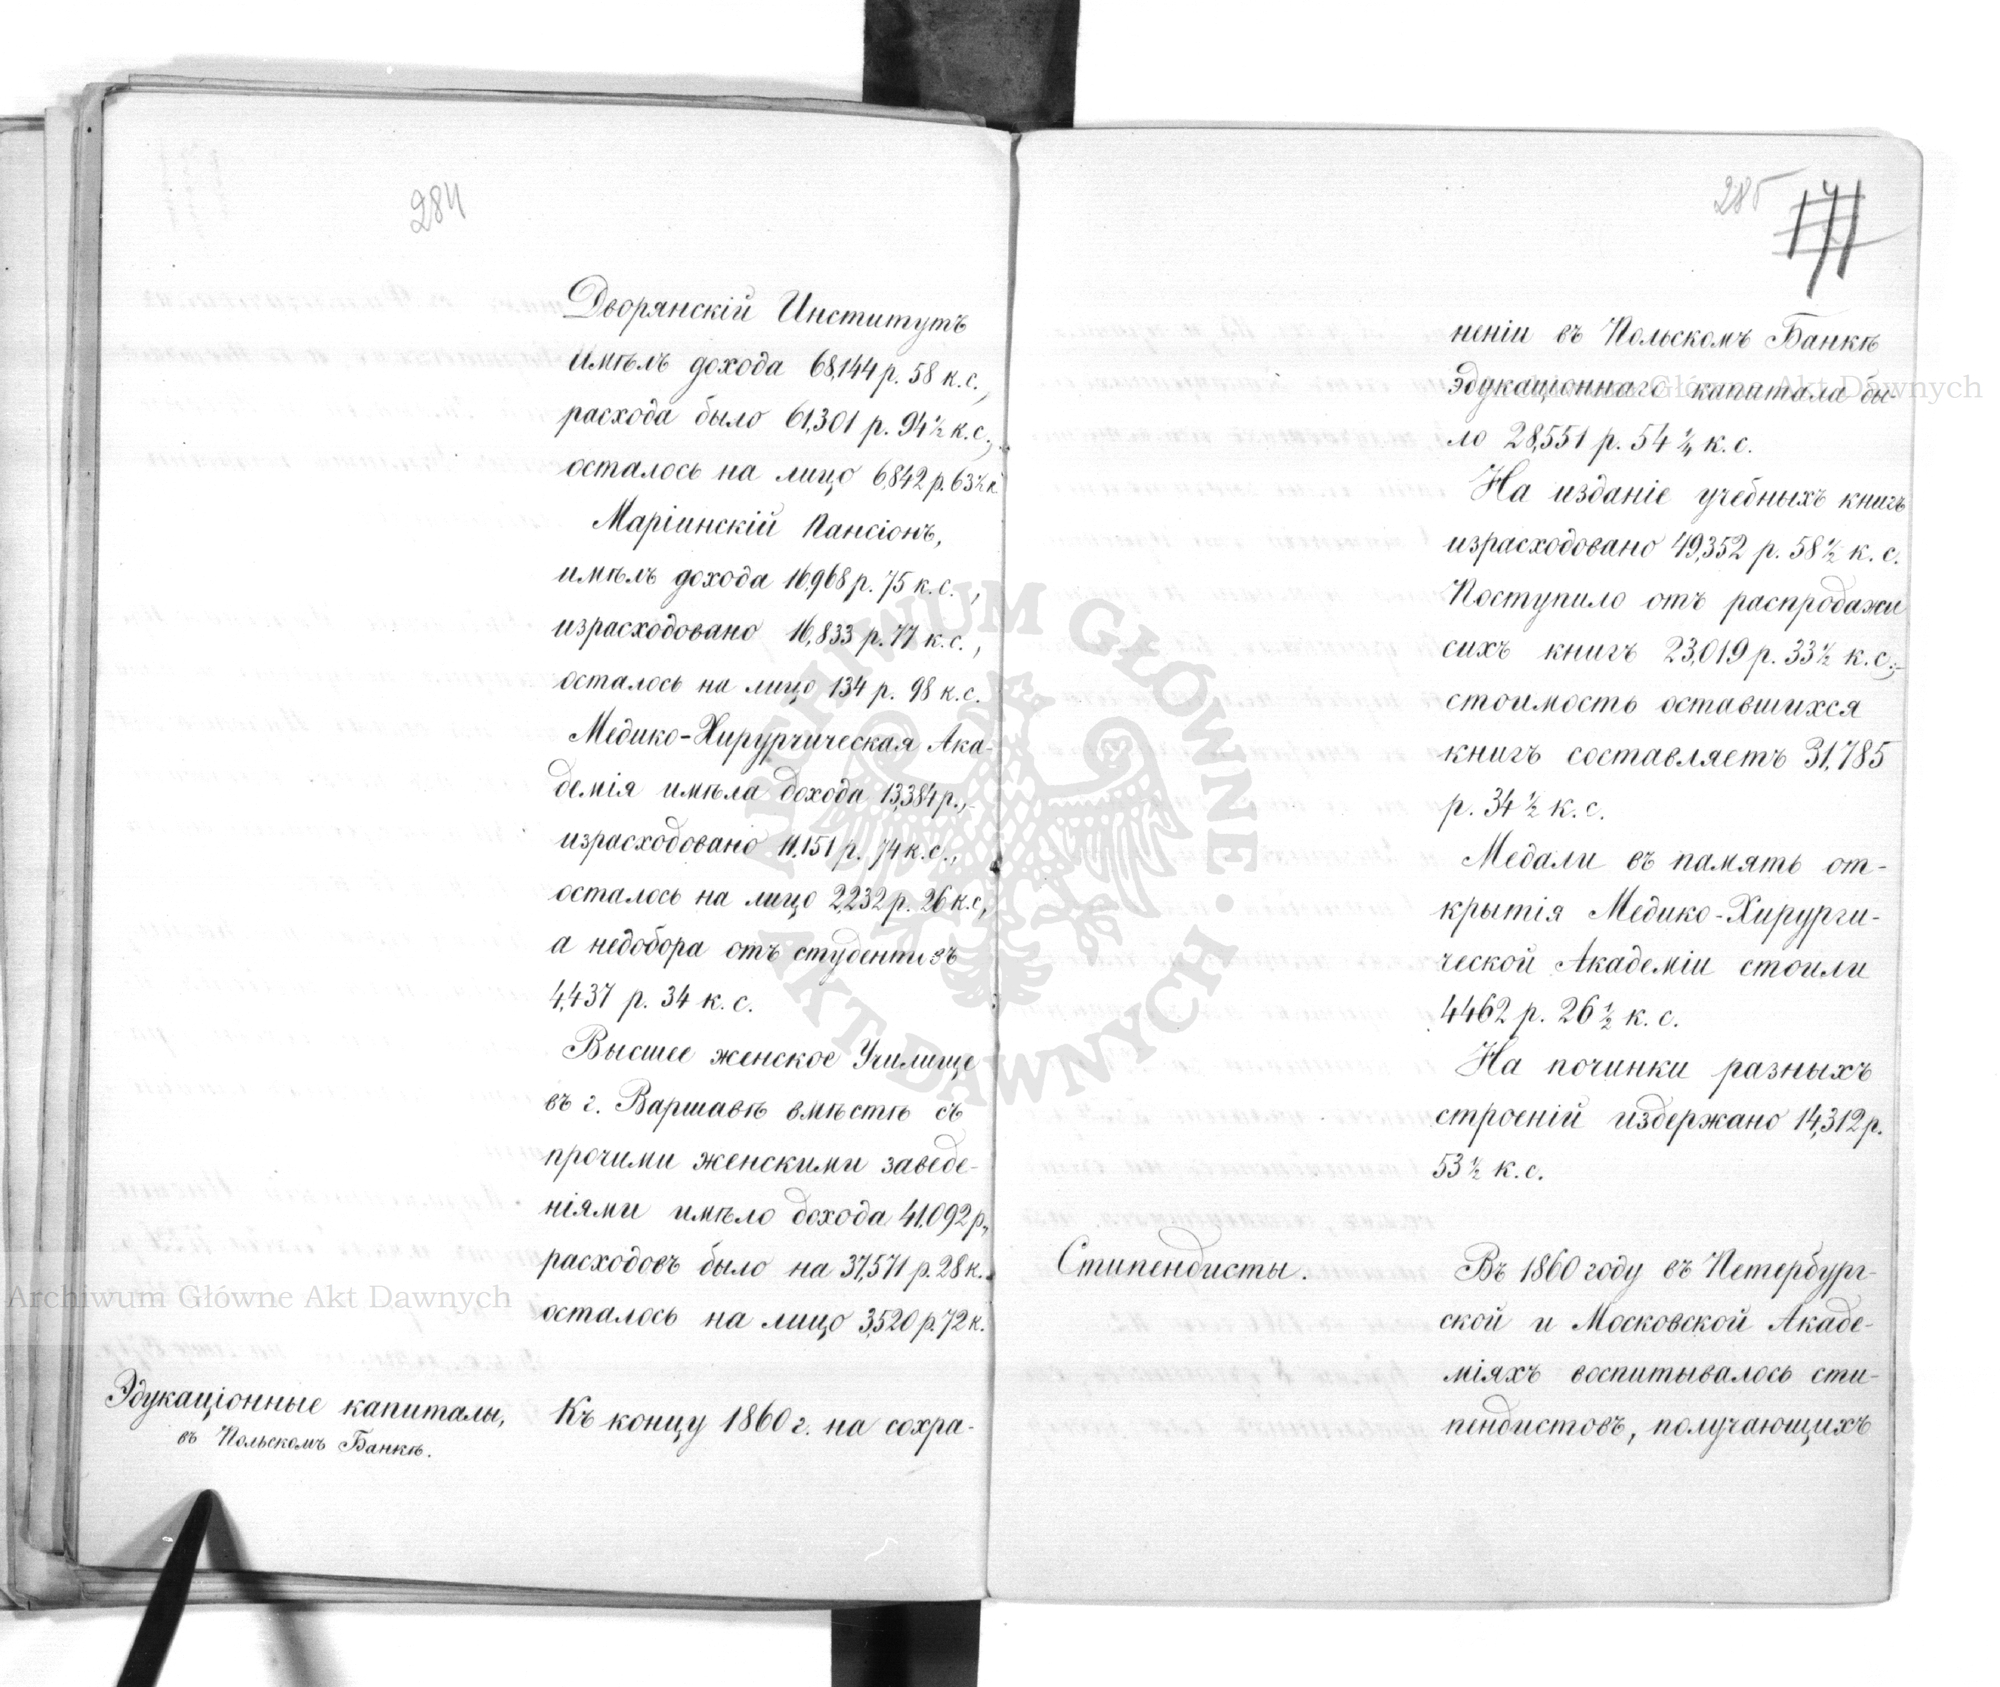 284
Дворянскій Институтъ
имѣлъ дохода 68,144 р. 58 к.с.,
расхода было 61,301 р. 94½ к.с.,
осталось на лицо 6,842 р. 63½ к
Маріинскій Пансіонъ,
имѣлъ дохода 16,968 р. 75 к.с.,
израсходовано 16,833 р. 77 к.с.,
осталось на лицо 134 р. 98 к.с.
Медико-Хирургическая Ака-
демія имѣла дохода 13,384 р.,
израсходовано 11,151 р. 74 к.с.,
осталось на лицо 2,232 р. 26 к.с,
а недобора отъ студентовъ
4,437 р. 34 к.с.
Высшее женское Училище
въ г. Варшавѣ вмѣстѣ съ
прочими женскими заведе-
ніями имѣло дохода 41,092 р,
расходовъ было на 37,571 р. 28 к.
осталось на лицо 3,520 р. 72 к.
Эдукаціонные капиталы,
въ Польскомъ Банкѣ.
Къ концу 1860 г. на сохра-
285
171
неніи въ Польскомъ Банкѣ
Эдукаціоннаго капитала бы-
ло 28,551 р. 54 ¼ к.с.
На изданіе учебныхъ книгъ
израсходовано 49,352 р. 58½ к.с.
Поступило отъ распродажи
сихъ книгъ 23,019 р. 33½ к.с.,
стоимость оставшихся
книгъ составляетъ 31,785
р. 34½ к.с.
Медали въ память от-
крытія Медико-Хирурги-
ческой Академіи стоили
4462 р. 26½ к.с.
На починки разныхъ
строеній издержано 14,312 р.
53½ к.с.
Стипендисты.
Въ 1860 году въ Петербург-
ской и Московской Акаде-
міяхъ воспитывалось сти-
пендистовъ, получающихъ
Archiwum Główne Akt Dawnych
Archiwum Główne Akt Dawnych
ARCHIWUM GŁÓWNE • AKT DAWNYCH •